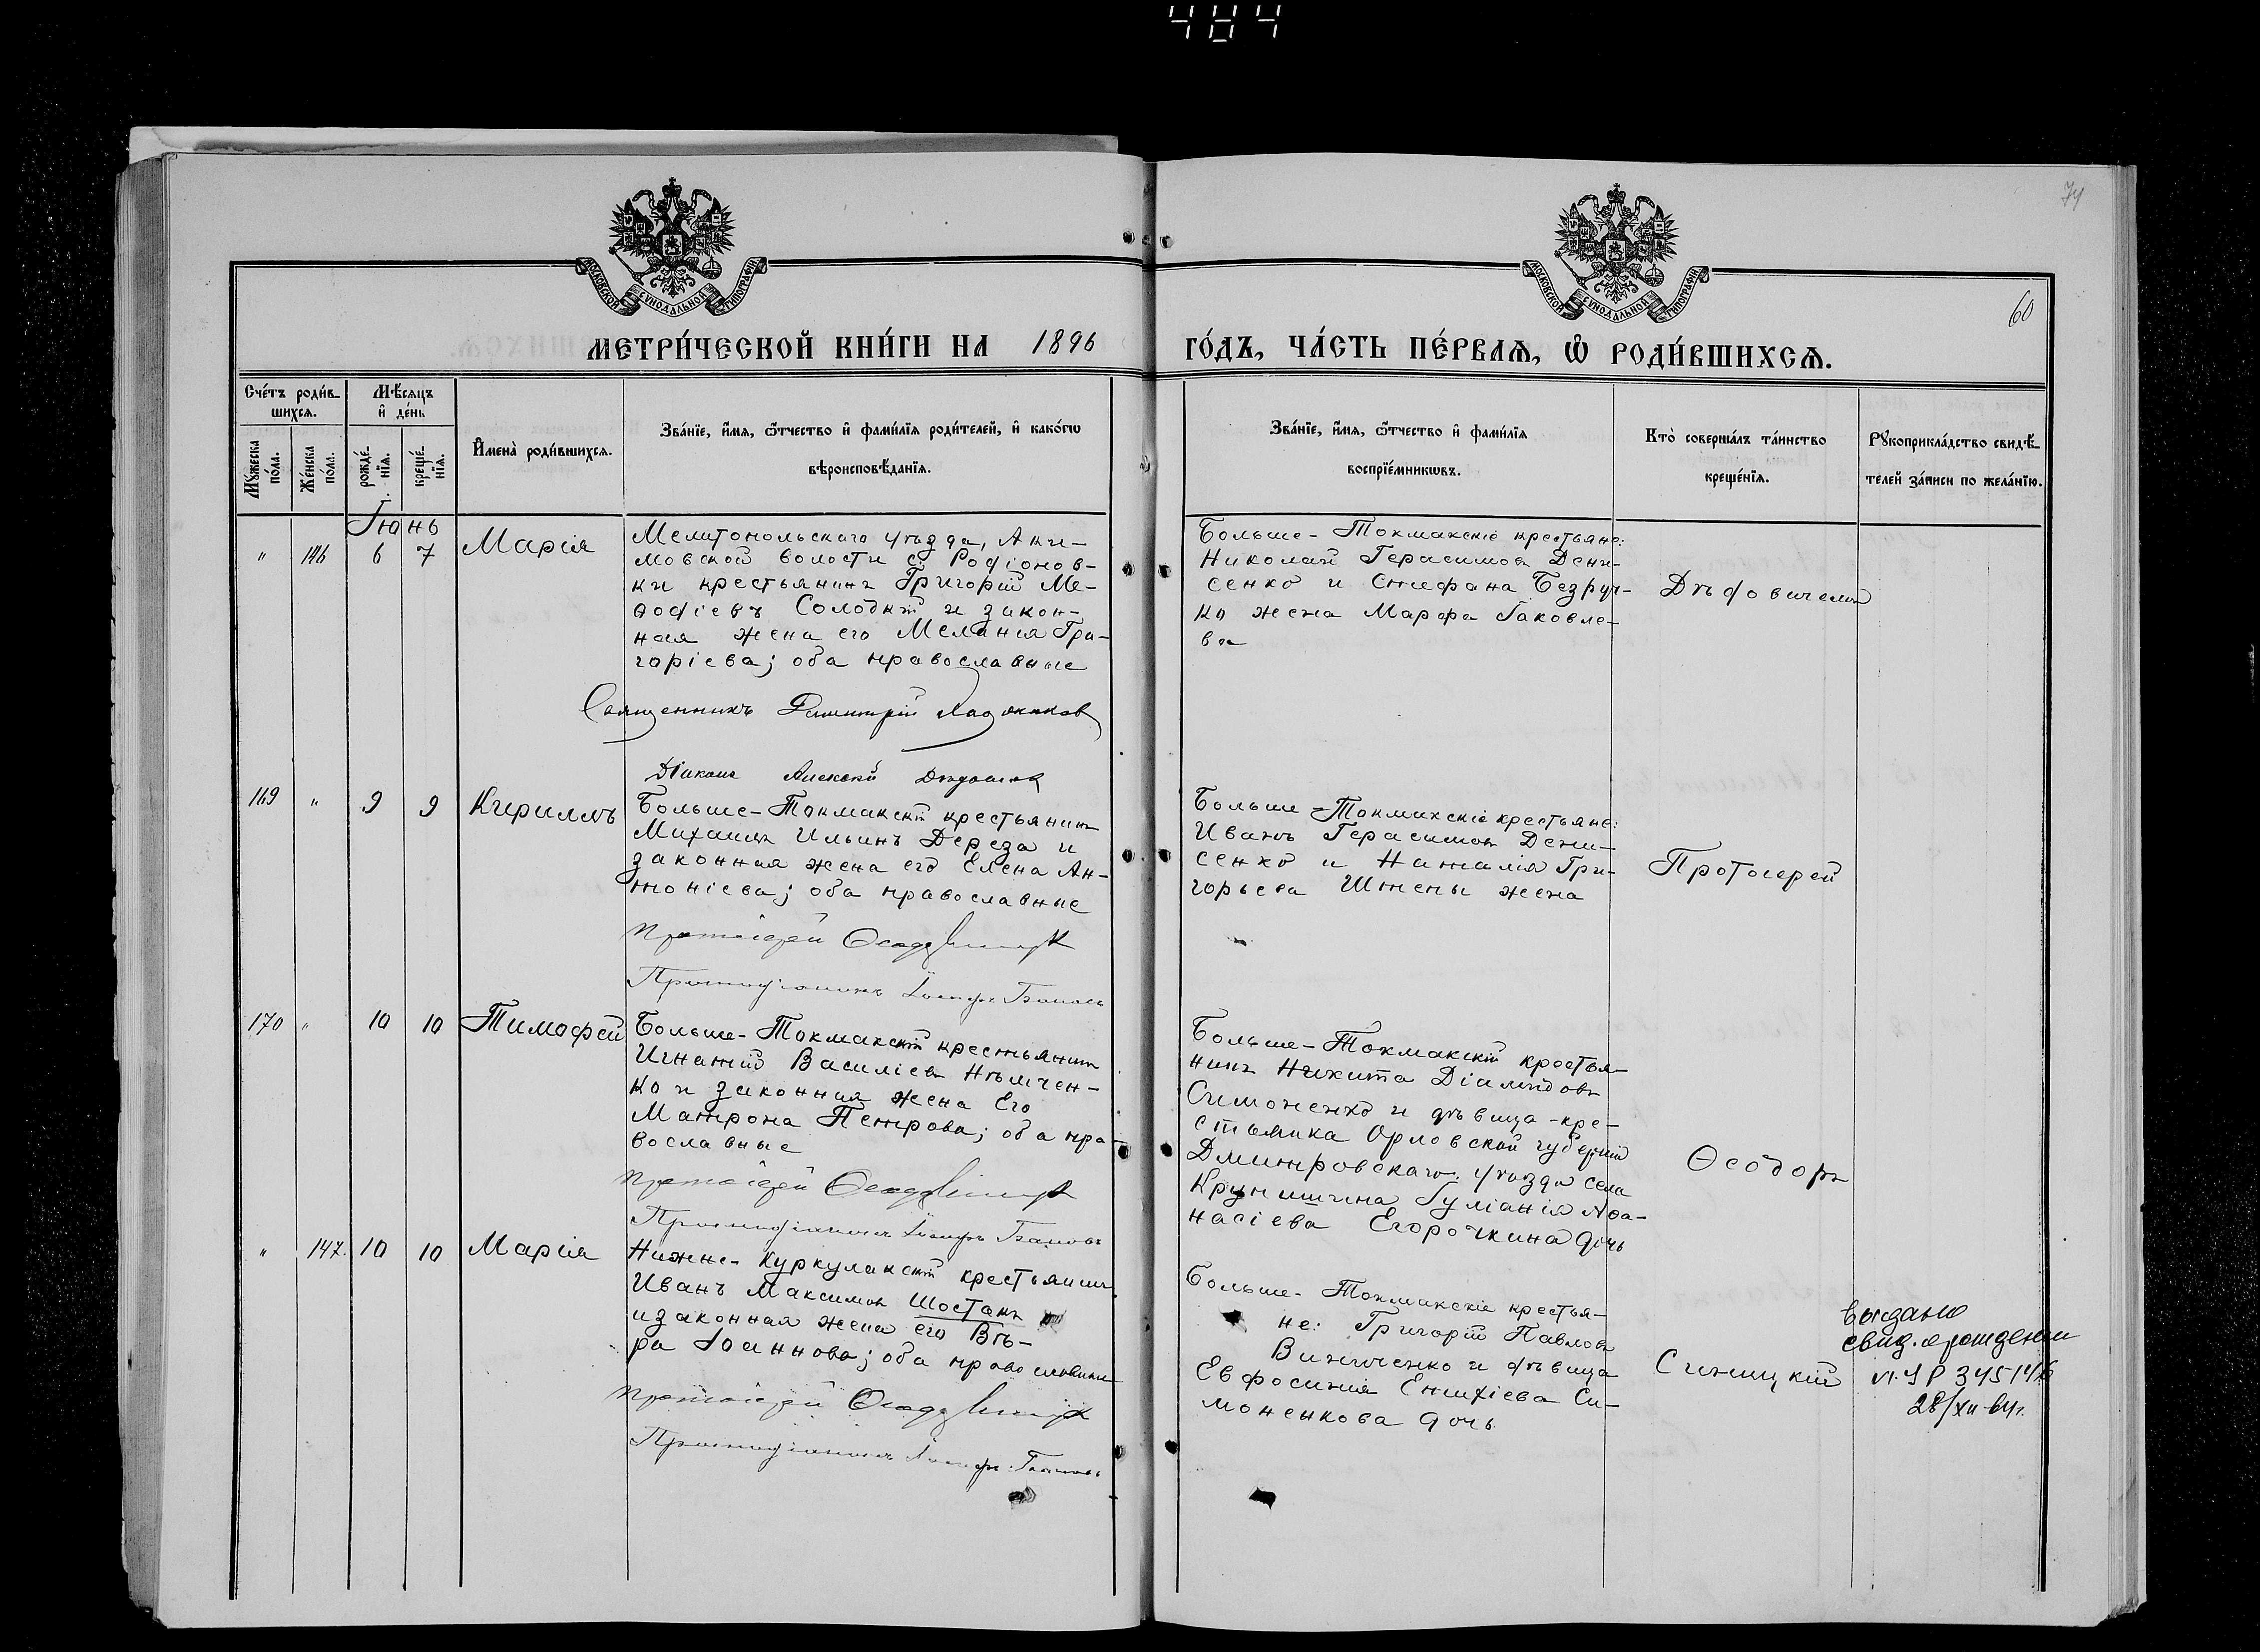 484
74
60
МОСКОВСКОЙ СѴНОДАЛЬНОЙ ТИПОГРАФІИ
МОСКОВСКОЙ СѴНОДАЛЬНОЙ ТИПОГРАФІИ
МЕТРИ́ЧЕСКОЙ КНИ́ГИ НА 1896
ГО́ДЪ, ЧА́СТЬ ПЕ́РВАѦ, Ѽ РОДИ́ВШИХСѦ.
Сче́тъ роди́в-
шихсѧ.
Мꙋ́жеска по́ла.
Же́нска по́ла.
Мѣ́сѧцъ
и҆ де́нь
рожде́-
нїѧ.
креще́-
нїѧ.
И҆мена̀ роди́вшихсѧ.
Зва́нїе, и҆́мѧ, ѻ҆́тчество и҆ фами́лїѧ роди́телей, и҆ како́гѡ
вѣроисповѣ́данїѧ.
Зва́нїе, и҆́мѧ, ѻ҆́тчество и҆ фами́лїѧ
воспрїе́мникѡвъ.
Кто̀ соверша́лъ та́инство
креще́нїѧ.
Рꙋкоприкла́дство свидѣ́-
телей за́писи по жела́нїю.
Іюнь
" 146 6 7 Марія
Мелитопольскаго уѣзда, Аки-
мовской волости с. Родіонов-
ки крестьянинъ Григорій Ме-
ѳодіевъ Солодкій и закон-
ная жена его Меланія Гри-
горіева; оба православные
Священникъ Димитрій
Діаконъ Алексѣй
Больше-Токмакскіе крестьяне:
Николай Герасимовъ Дени-
сенко и Стефана Безруч-
ко жена Марфа Іаковле-
ва
169 " 9 9 Кириллъ
Больше-Токмакскій крестьянинъ
Михаилъ Ильинъ Дереза и
законная жена его Елена Ан-
тоніева; оба православные
Протоіерей
Протодіаконъ
Больше-Токмакскіе крестьяне:
Иванъ Герасимовъ Дени-
сенко и Наталія Гри-
горьева Штепы жена
Протоіерей
170 " 10 10 Тимофей
Больше-Токмакскій крестьянинъ
Игнатій Василіевъ Нѣмчен-
ко и законная жена его
Матрона Петрова; оба пра-
вославные
Протоіерей
Протодіаконъ
Больше-Токмакскій крестья-
нинъ Никита Діамидовъ
Симоненко и дѣвица-кре-
стьянка Орловской губерніи
Дмитровскаго уѣзда села
Іуліанія Аѳа-
насіева Егорочкина дочь
Ѳеодоръ
" 147. 10 10 Марія
Нижне-Куркулакскій крестьянинъ
Иванъ Максимовъ Шостакъ
и законная жена его Вѣ-
ра Іоаннова; оба православные
Протоіерей
Протодіаконъ
Больше-Токмакскіе крестья-
не: Григорій Павловъ
Винниченко и дѣвица
Евфосинія Си-
моненкова дочь
Синицкій
выдано
свид. о рождении
345146
28/XII-64г.